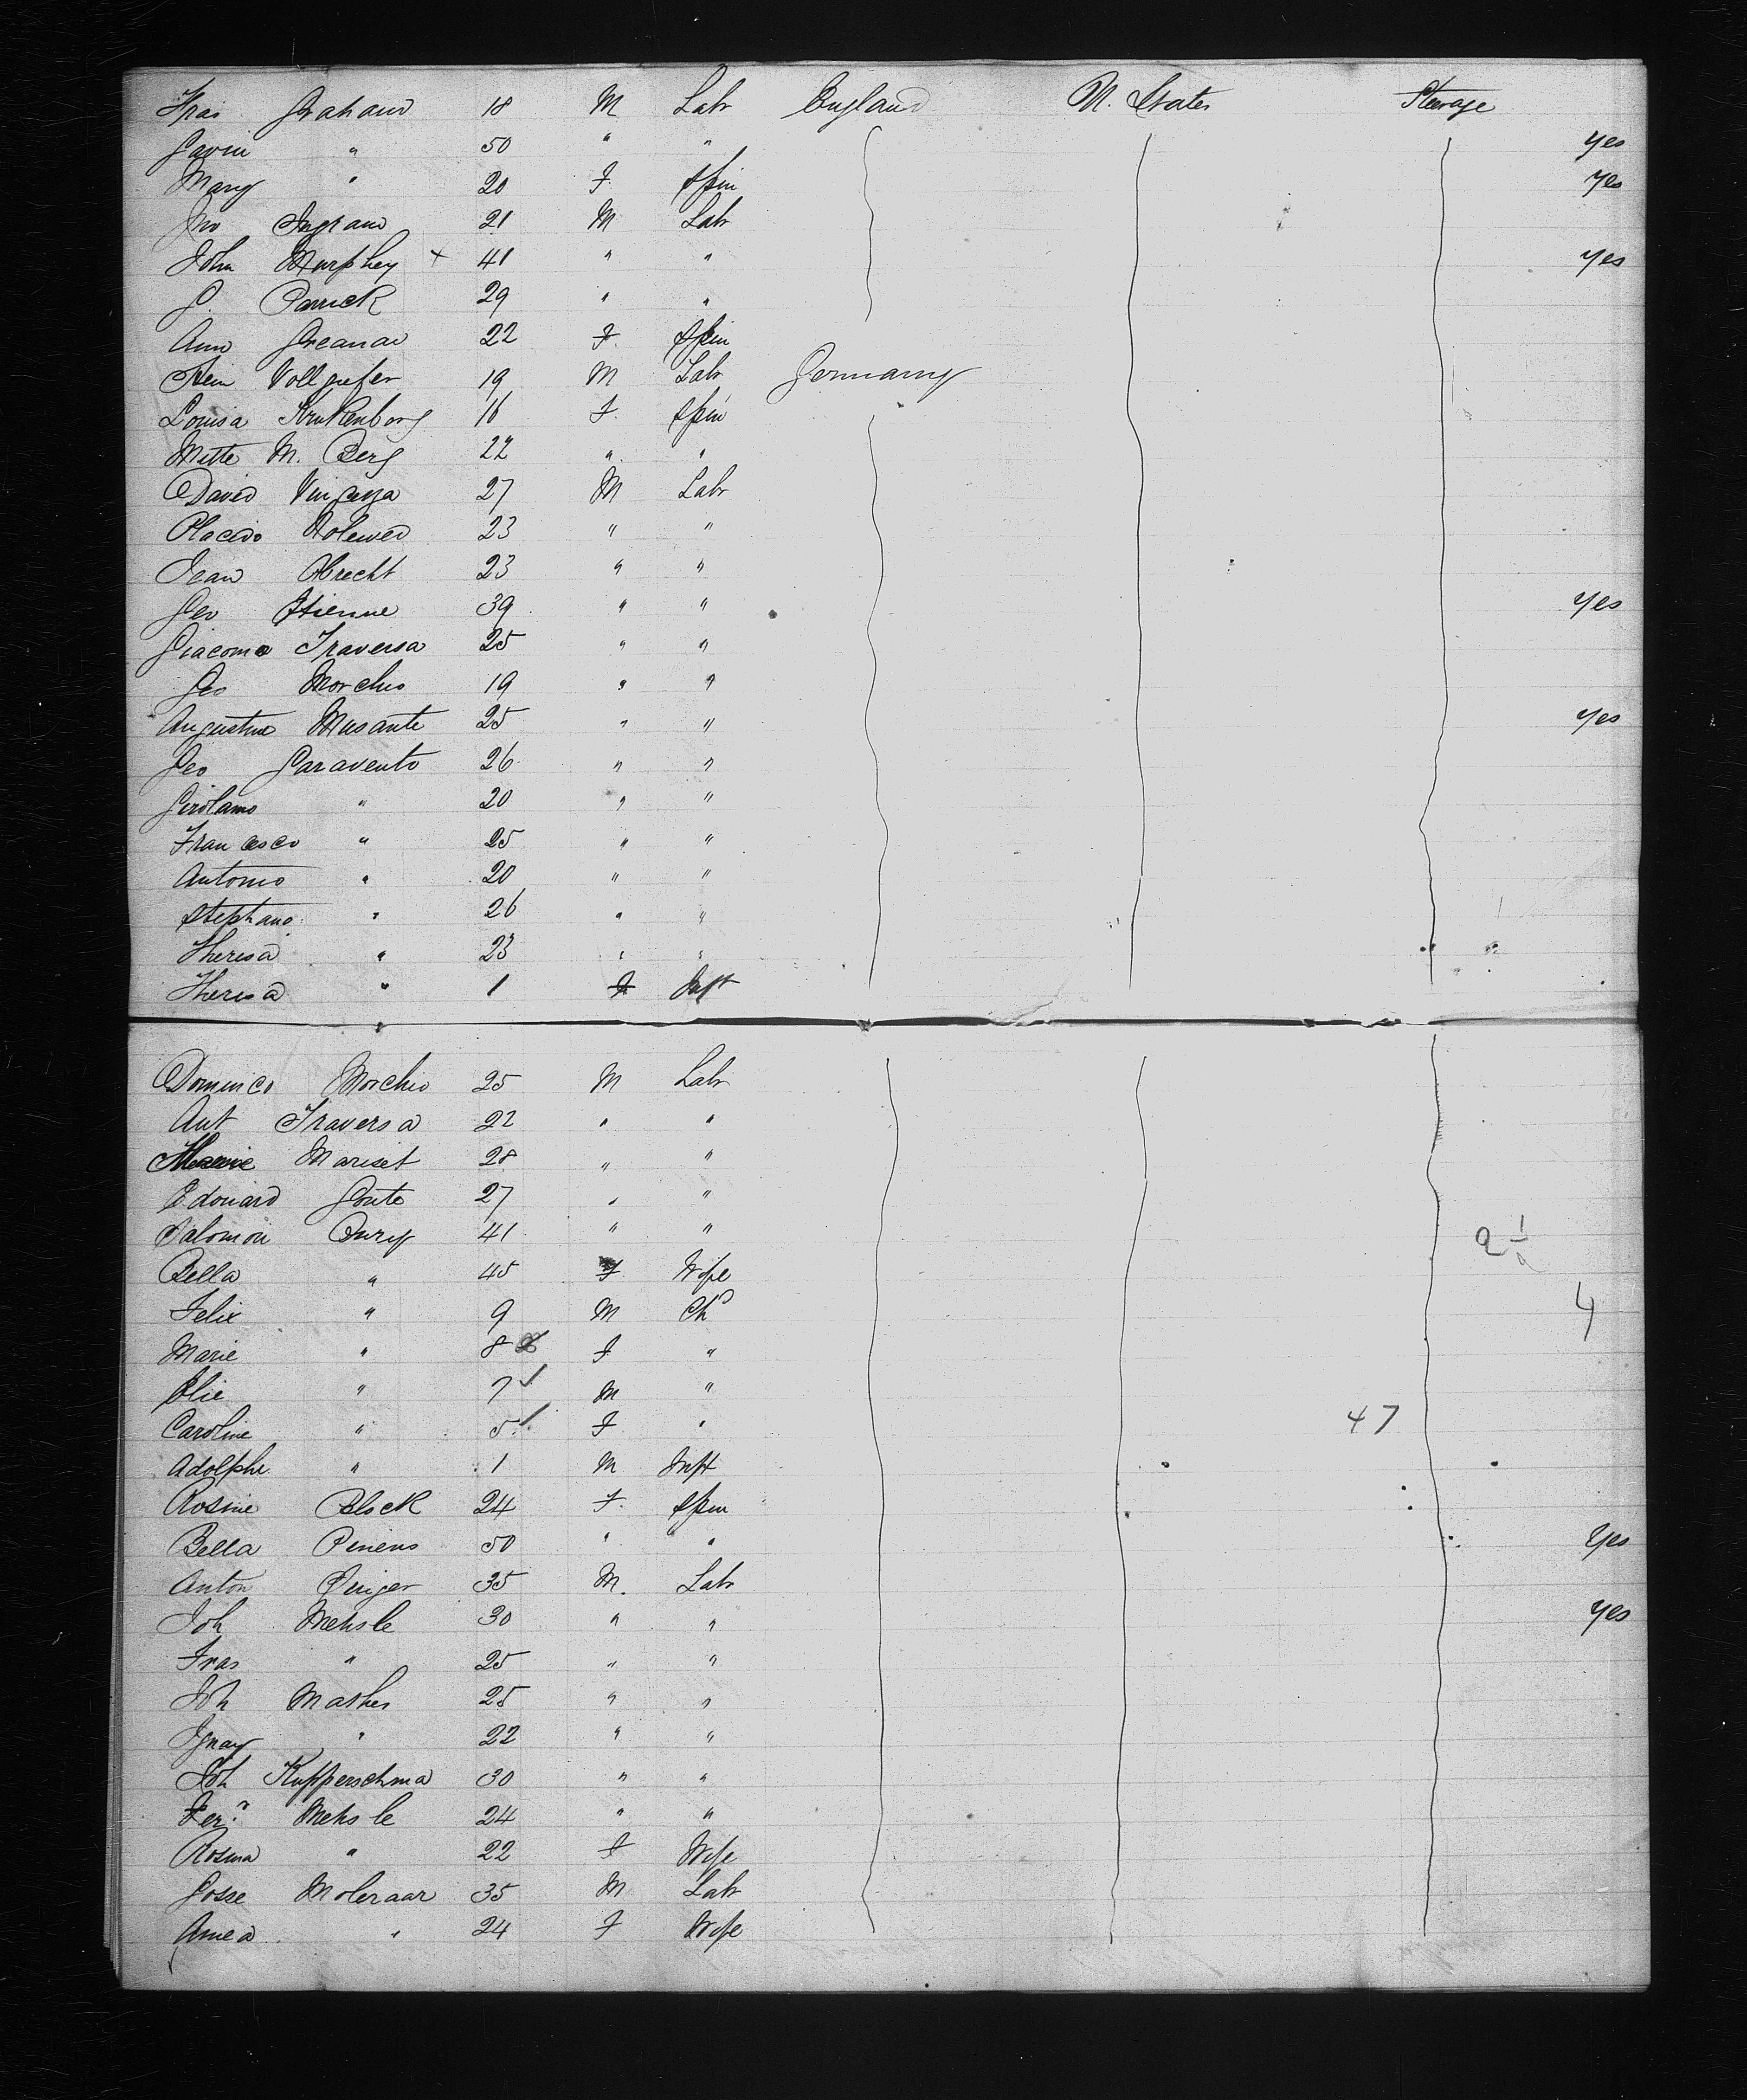 Fras Graham 18 M Labr England U. States Steerage
Gavin " 50 " " yes
Mary " 20 F. Spin yes
Jno Ingram 21 M Labr
John Murphey + 41 " " yes
J. Carrick 29 " "
Ann Greanan 22 F. Spin
Hein 19 M Labr Germany
Louisa Krukenborg 16 F. Spin
Mette M. Berg 22 " "
David 27 M Labr
Placido 23 " "
Jean Obrecht 23 " "
Geo Etienne 39 " " yes
Giacomo Traversa 25 " "
Geo Morchio 19 " "
Augustino Musante 25 " " yes
Geo Garavento 26 " "
Girolamo " 20 " "
Francesco " 25 " "
Antonio " 20 " "
Stephano " 26 " "
Theresa " 23 " "
Theresa " 1 F Inft
Dominico Morchio 25 M Labr
Ant Traversa 22 " "
Mariset 28 " "
Edouard 27 " "
Salomon 41 " "
Bella " 45 F Wife
Felix " 9 M Chd 4
Marie " 8 F "
Elie " 7 M "
Caroline " 5 F " 47
Adolphe " 1 M Inft
Rosine Block 24 F. Spin
Bella 50 " " Yes
Anton 35 M. Labr
Joh Mehsle 30 " " yes
Fras " 25 " "
Joh Mather 25 " "
Ignaz " 22 " "
Joh Kupperschma 30 " "
Ferd Mehsle 24 " "
Rosina " 22 F Wife
Gosse Molenaar 35 M Labr
" 24 F Wife